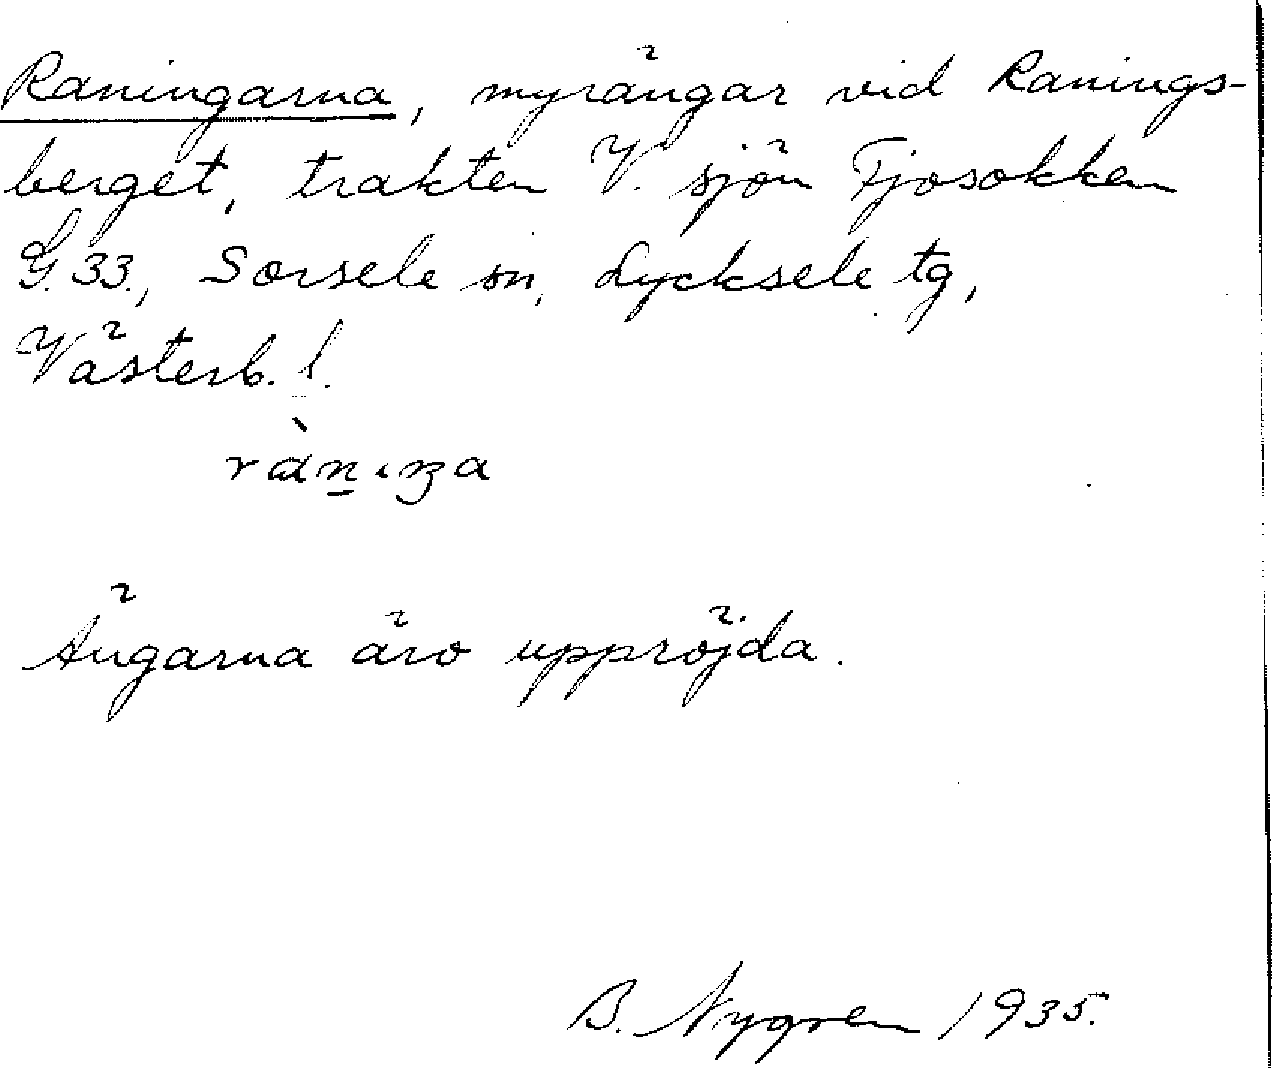 Raningarna, myrängar vid Ranings-
berget, trakten V. sjön Fjosokken
G. 33., Sorsele sn, Lycksele tg,
Västerb. l.
rànıŋa
Ängarna äro uppröjda.
B. Nygren 1935.